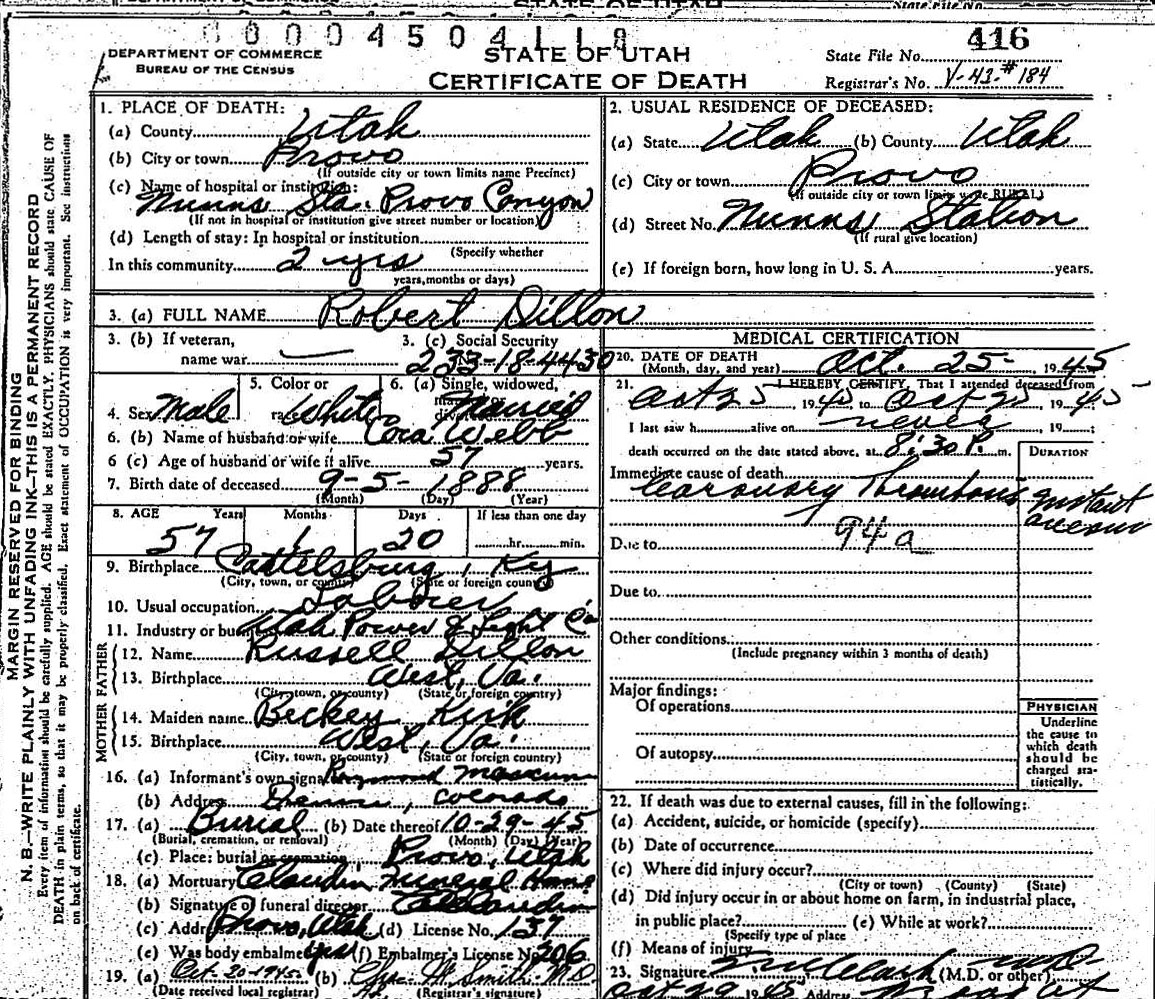 STATE OF UTAH
State File No.
00004504118
DEPARTMENT OF COMMERCE
BUREAU OF THE CENSUS
STATE OF UTAH
CERTIFICATE OF DEATH
State File No. 416
Registrar's No. V-43-#184
MARGIN RESERVED FOR BINDING
N. B.—WRITE PLAINLY WITH UNFADING INK—THIS IS A PERMANENT RECORD
Every item of information should be carefully supplied. AGE should be stated EXACTLY. PHYSICIANS should state CAUSE OF
DEATH in plain terms, so that it may be properly classified. Exact statement of OCCUPATION is very important. See instructions
on back of certificate.
1. PLACE OF DEATH:
(a) County Utah
(b) City or town Provo
(If outside city or town limits name Precinct)
(c) Name of hospital or institution:
Nunns Sta. Provo Canyon
(If not in hospital or institution give street number or location)
(d) Length of stay: In hospital or institution
(Specify whether
In this community 2 yrs
years, months or days)
2. USUAL RESIDENCE OF DECEASED:
(a) State Utah (b) County Utah
(c) City or town Provo
(If outside city or town limits write RURAL)
(d) Street No. Nunns Station
(If rural give location)
(e) If foreign born, how long in U. S. A. years.
3. (a) FULL NAME Robert Dillon
3. (b) If veteran,
name war —
3. (c) Social Security
233-18-4430
4. Sex Male
5. Color or
race White
6. (a) Single, widowed,
married or
Married
6. (b) Name of husband or wife Cora Webb
6 (c) Age of husband or wife if alive 57 years.
7. Birth date of deceased 9-5-1888
(Month) (Day) (Year)
8. AGE Years Months Days If less than one day
57 1 20 hr. min.
9. Birthplace Cattelsburg, Ky
(City, town, or county) (State or foreign country)
10. Usual occupation Laborer
11. Industry or bus Utah Power & Light Co
FATHER
12. Name Russell Dillon
13. Birthplace West, Va.
(City, town, or county) (State or foreign country)
MOTHER
14. Maiden name Beckey Kirk
15. Birthplace West, Va.
(City, town, or county) (State or foreign country)
16. (a) Informant's own signa Raymond
(b) Address Colorado
17. (a) Burial (b) Date thereof 10-29-45
(Burial, cremation, or removal) (Month) (Day) (Year)
(c) Place: burial or cremation Provo, Utah
18. (a) Mortuary Claudin Funeral Home
(b) Signature of funeral director Claudin
(c) Address Provo, Utah (d) License No. 137
(e) Was body embalmed yes (f) Embalmer's License No. 206
19. (a) Oct-20-1945 (b) Smith M.D
(Date received local registrar) (Registrar's signature)
MEDICAL CERTIFICATION
20. DATE OF DEATH
(Month, day, and year) Oct. 25- 1945
21. I HEREBY CERTIFY, That I attended deceased from
Oct 25 1945 to Oct 25 1945
I last saw h alive on never, 19
death occurred on the date stated above, at 8:30 P. m.
DURATION
Immediate cause of death
Coronary Thrombosis
instant
94a
Due to
Due to
Other conditions
(Include pregnancy within 3 months of death)
Major findings:
Of operations
Of autopsy
PHYSICIAN
Underline
the cause to
which death
should be
charged sta-
tistically.
22. If death was due to external causes, fill in the following:
(a) Accident, suicide, or homicide (specify)
(b) Date of occurrence
(c) Where did injury occur?
(City or town) (County) (State)
(d) Did injury occur in or about home on farm, in industrial place,
in public place? (e) While at work?
(Specify type of place
(f) Means of injury
23. Signature (M.D. or other)
Oct 29 1945 Address